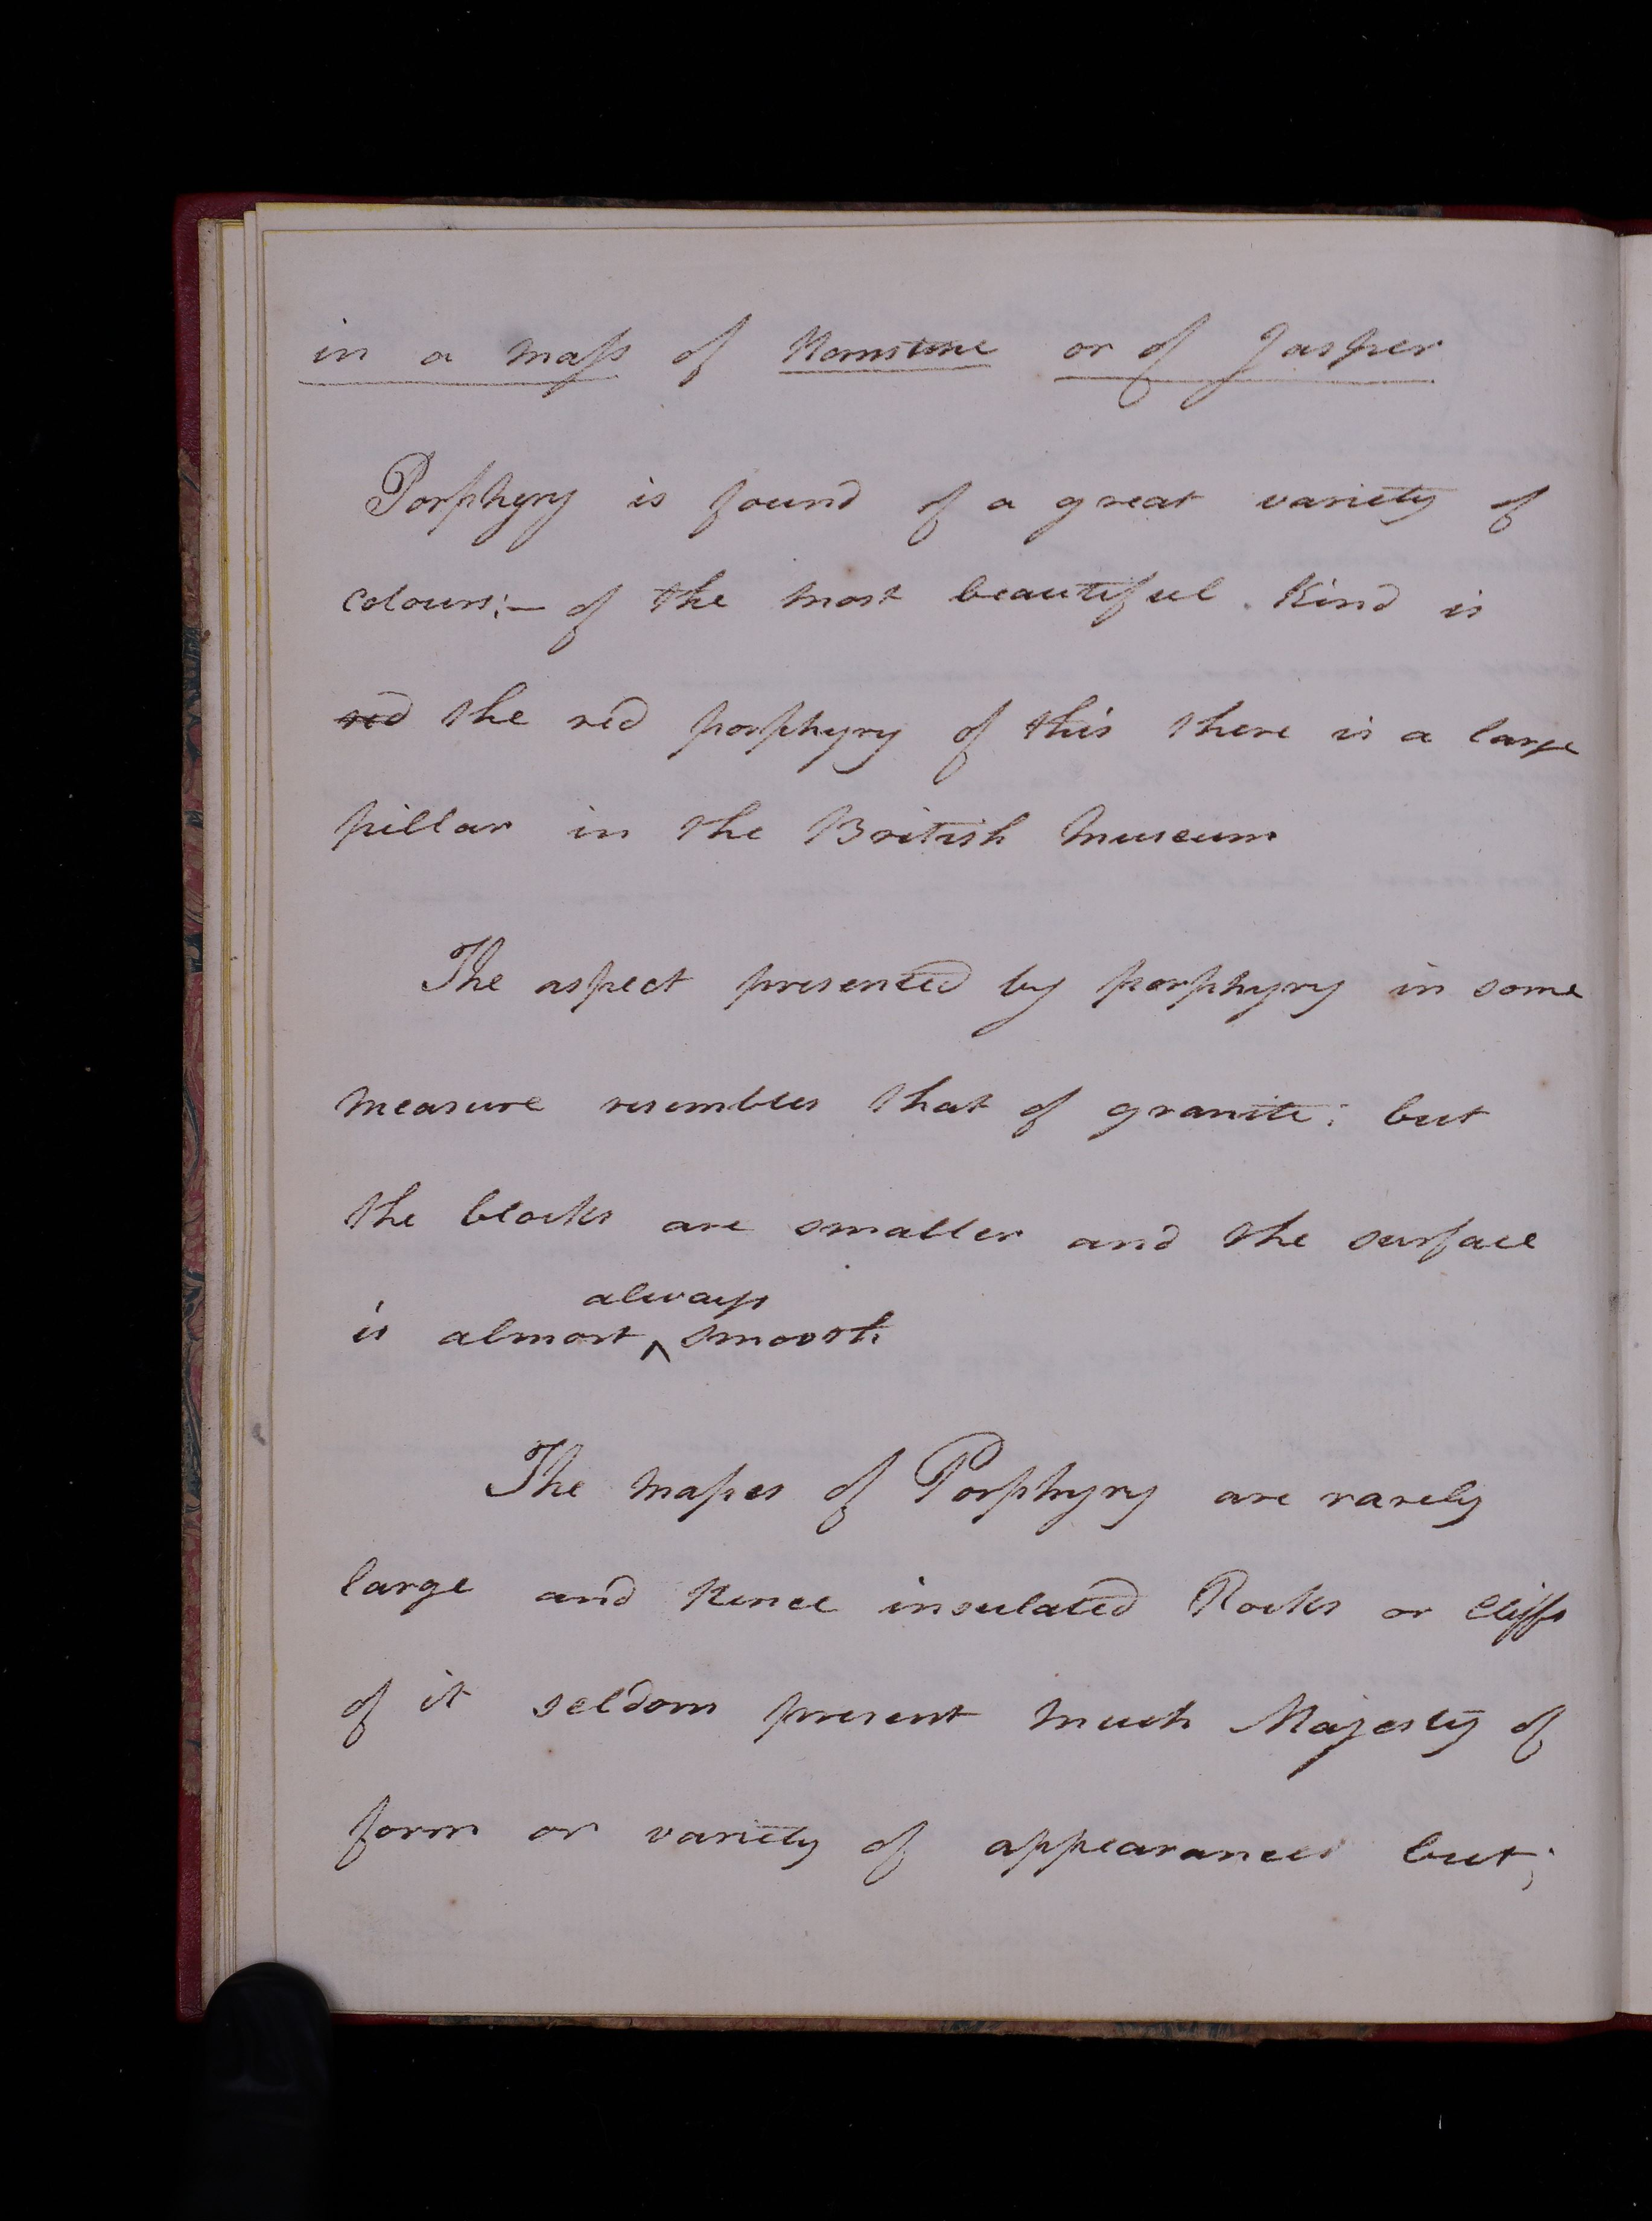 in a mass of Hornstone or of Jasper
Porphyry is found of a great variety of
colours:— of the most beautiful Kind is
red the red porphyry of this there is a large
pillar in the British Museum
The aspect presented by porphyry in some
measure resembles that of granite: but
the blocks are smaller and the surface
always
is almost ^ smooth
The masses of Porphyry are rarely
large and hence insulated Rocks or Cliffs
of it seldom present much Majesty of
form or variety of appearances but;